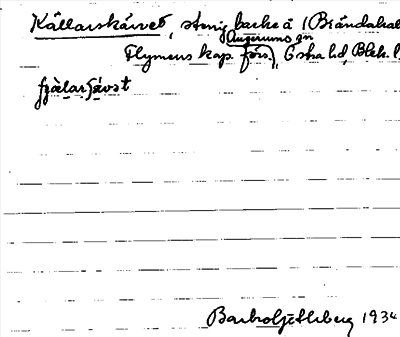 Källarskärvet, stenig backe å (Brändahal
Augerums sn
Flymens kap. förs.), Östra hd, Blek. l
Barbro Jettlberg 1934